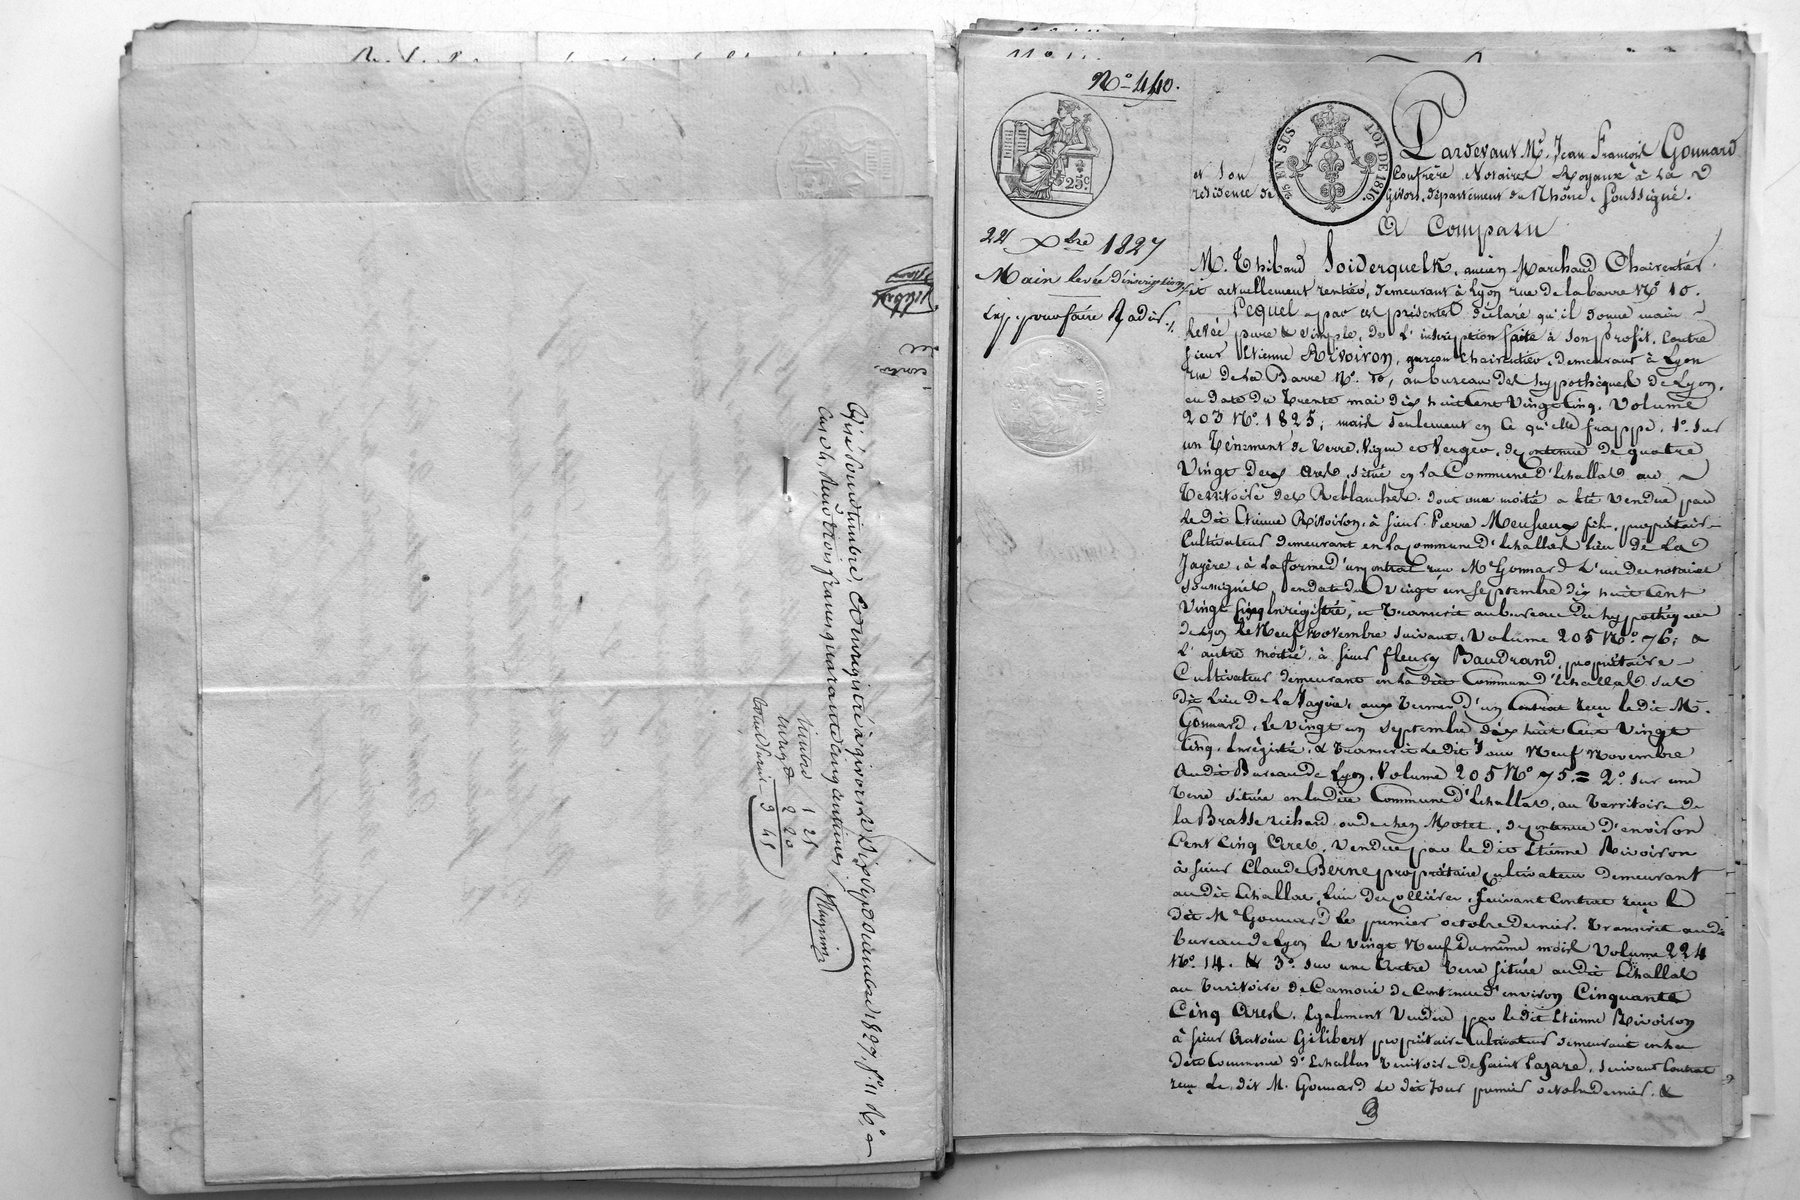 Visé pour timbre, et enregistré à givors le Dix Sept décembre 1827, f° 11 R°
Case 4, Reçu trois francs quarante cinq centimes
timbre 1 25
enregt 2 20
3 45
N° 440.
25 c
25 EN SUS
LOI DE 1816.
22 Xbre 1827
Main levée d'inscription
Exp. pour faire Radier
Pardevant Me. Jean François Gonnard
et son Confrère Notaires Royaux à la
résidence de Givors, département du Rhône, Soussignés.
A Comparu
M. Thibaud Soiderquelk, ancien Marchand Chaircutier
et actuellement rentier, demeurant à Lyon rue de la barre N° 10.
Lequel a par ces présentes déclaré qu'il donne main
levée pure & simple, de l'inscription faite à son profit, contre
sieur Etienne Rivoiron, garçon chaircutier, demeurant à Lyon
rue de la Barre N°. 10, au bureau des hypothèques de Lyon,
en date du trente mai dix huit cent vingt cinq, Volume
203 N°. 1825; mais seulement en ce qu'elle frappe, 1°. sur
un Ténement de Terre, Vigne et Verger, de contenue de quatre
Vingt deux Ares, situé en la Commune d'Echallas au
Territoire des Reblanches dont une moitié a été vendue par
le dit Etienne Rivoiron, à sieur Pierre fils, propriétaire
Cultivateur demeurant en la commune d'Echallas lieu de La
Jayère, à la forme d'un contrat reçu Me Gonnard l'un des notaires
soussignés, en date du Vingt un septembre dix huit cent
Vingt cinq Enrégistré, et Transcrit au bureau des hypothèques
de Lyon le Neuf Novembre suivant, Volume 205 N°. 76; &
l'autre moitié, à sieur fleury Baudrand, propriétaire
Cultivateur demeurant en la dite Commune d'Echallas sus
dit Lieu de La Jayère, aux termes d'un Contrat reçu le dit Me.
Gonnard, Le vingt un septembre dix huit Cent Vingt
Cinq, Enrégistré, & Transcrit Le dit Jour Neuf Novembre
Audit Bureau de Lyon, Volume 205 N° 75. = 2°. sur une
Terre située en ladite Commune d'Echallas, au Territoire de
la Brasse richard ou de chez Motet, de contenue d'environ
Cent Cinq Ares, Vendue par le dit Etienne Rivoiron
à sieur Claude Berne propriétaire cultivateur demeurant
audit Echallas, Lieu de collière, suivant Contrat reçu le
dit Me Gonnard Le premier octobre dernier. Transcrit audit
bureau de Lyon le vingt Neuf du même mois Volume 224
N°. 14. & 3°. sur une Autre Terre située audit Echallas
au Territoire de Camoué de Contenue d'environ Cinquante
Cinq Ares, Egalement Vendue par le dit Etienne Rivoiron
à sieur Antoine Gilibert propriétaire Cultivateur demeurant en la
dite Commune d'Echallas Territoire de Saint Lazare, suivant Contrat
reçu Le dit M. Gonnard Le dit Jour premier octobre dernier. &